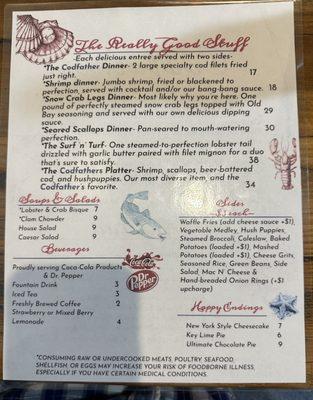 The Really Good Stuff
-Each delicious entree served with two sides-
*The Codfather Dinner- 2 large specialty cod filets fried
just right. 17
*Shrimp dinner- Jumbo shrimp, fried or blackened to
perfection, served with cocktail and/or our bang-bang sauce. 18
*Snow Crab Legs Dinner- Most likely why you're here. One
pound of perfectly steamed snow crab legs topped with Old
Bay seasoning and served with our own delicious dipping 29
sauce.
*Seared Scallops Dinner- Pan-seared to mouth-watering
perfection. 30
*The Surf 'n' Turf- One steamed-to-perfection lobster tail
drizzled with garlic butter paired with filet mignon for a duo
that's sure to satisfy. 38
*The Codfathers Platter- Shrimp, scallops, beer-battered
cod, and hushpuppies. Our most diverse item, and the
Codfather's favorite. 34
Soups & Salads
*Lobster & Crab Bisque 7
*Clam Chowder 9
House Salad 9
Caesar Salad 9
Beverages
Proudly serving Coca-Cola Products
& Dr. Pepper
Fountain Drink 3
Iced Tea 3
Freshly Brewed Coffee 2
Strawberry or Mixed Berry
Lemonade 4
Coca-Cola
Dr Pepper
Sides
Waffle Fries (add cheese sauce +$1),
Vegetable Medley, Hush Puppies,
Steamed Broccoli, Coleslaw, Baked
Potatoes (loaded +$1), Mashed
Potatoes (loaded +$1), Cheese Grits,
Seasoned Rice, Green Beans, Side
Salad, Mac N' Cheese &
Hand-breaded Onion Rings (+$1
upcharge)
Happy Endings
New York Style Cheesecake 7
Key Lime Pie 6
Ultimate Chocolate Pie 9
*CONSUMING RAW OR UNDERCOOKED MEATS, POULTRY SEAFOOD,
SHELLFISH, OR EGGS MAY INCREASE YOUR RISK OF FOODBORNE ILLNESS,
ESPECIALLY IF YOU HAVE CERTAIN MEDICAL CONDITIONS.